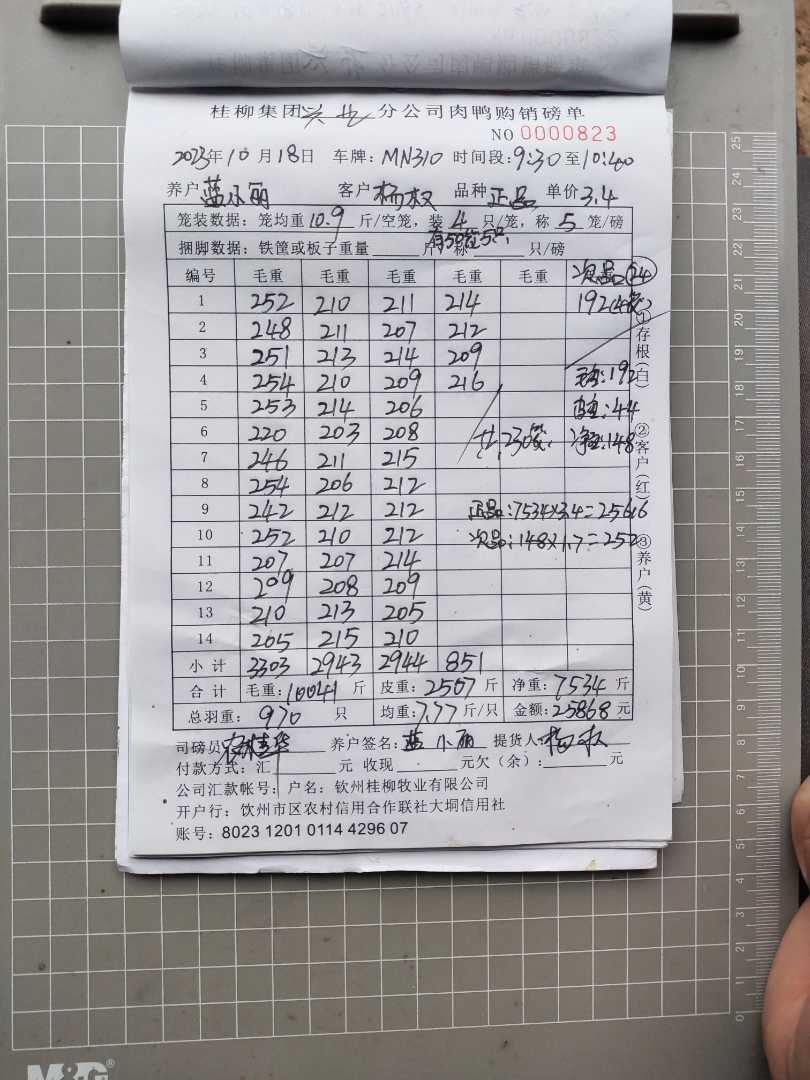 桂柳集团兴业分公司肉鸭购销磅单
NO 0000823
2023年10月18日 车牌:MN310 时间段:9:30至10:40
养户蓝小丽 客户杨权 品种正品 单价3.4
笼装数据:笼均重10.9斤/空笼,装4只/笼,称5笼/磅
有50笼5只,
捆脚数据:铁筐或板子重量 斤,称 只/磅
编号 毛重 毛重 毛重 毛重 毛重 次品24
1 252 210 211 214 192(4笼)
2 248 211 207 212
3 251 213 214 209
4 254 210 209 216 毛:192
5 253 214 206 皮:44
6 220 203 208 共,230笼, 净:148
7 246 211 215
8 254 206 212
9 242 212 212 正品:7534×3.4=25616
10 252 210 212 次品:148×1.7=252
11 207 207 214
12 209 208 209
13 210 213 205
14 205 215 210
小计 3303 2943 2944 851
合计 毛重:10041斤 皮重:2507斤 净重:7534斤
总羽重: 970 只 均重:7.77斤/只 金额:25868元
司磅员 养户签名:蓝小丽 提货人:杨权
付款方式:汇 元 收现 元欠(余): 元
公司汇款帐号:户名:钦州桂柳牧业有限公司
开户行:饮州市区农村信用合作联社大垌信用社
账号:8023 1201 0114 4296 07
①存根(白) ②客户(红) ③养户(黄)
25
21
20
19
18
17
16
15
14
13
12
11
10
9
8
7
6
5
4
3
2
1
0
M&G®